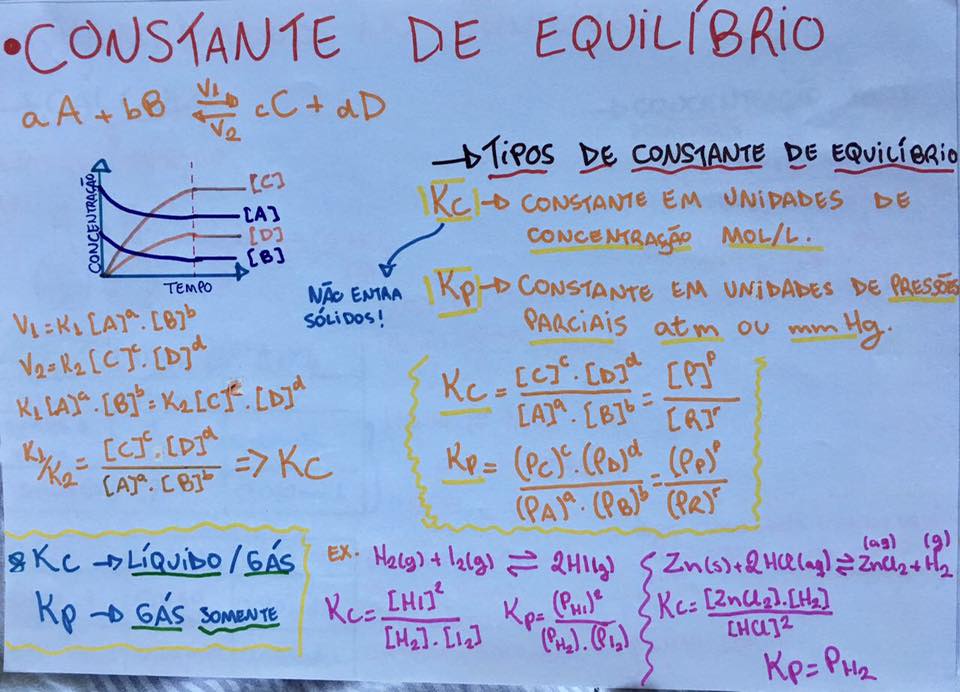 • CONSTANTE DE EQUILÍBRIO
aA + bB ⇌ cC + dD
V1
V2
CONCENTRAÇÃO
[C]
[A]
[D]
[B]
TEMPO
V1 = K1 [A]ᵃ . [B]ᵇ
V2 = K2 [C]ᶜ . [D]ᵈ
K1 [A]ᵃ . [B]ᵇ = K2 [C]ᶜ . [D]ᵈ
K1/K2 = [C]ᶜ . [D]ᵈ / [A]ᵃ . [B]ᵇ => KC
→ TIPOS DE CONSTANTE DE EQUILÍBRIO
KC → CONSTANTE EM UNIDADES DE
CONCENTRAÇÃO MOL/L.
NÃO ENTRA
SÓLIDOS!
Kp → CONSTANTE EM UNIDADES DE PRESSÕES
PARCIAIS atm ou mmHg.
KC = [C]ᶜ . [D]ᵈ / [A]ᵃ . [B]ᵇ = [P]ᵖ / [R]ʳ
Kp = (PC)ᶜ . (PD)ᵈ / (PA)ᵃ . (PB)ᵇ = (PP)ᵖ / (PR)ʳ
* KC → LÍQUIDO / GÁS
Kp → GÁS SOMENTE
EX. H2(g) + I2(g) ⇌ 2HI(g)
KC = [HI]² / [H2] . [I2]
Kp = (PHI)² / (PH2) . (PI2)
Zn(s) + 2HCl(aq) ⇌ ZnCl2 (aq) + H2 (g)
KC = [ZnCl2] . [H2] / [HCl]²
Kp = PH2